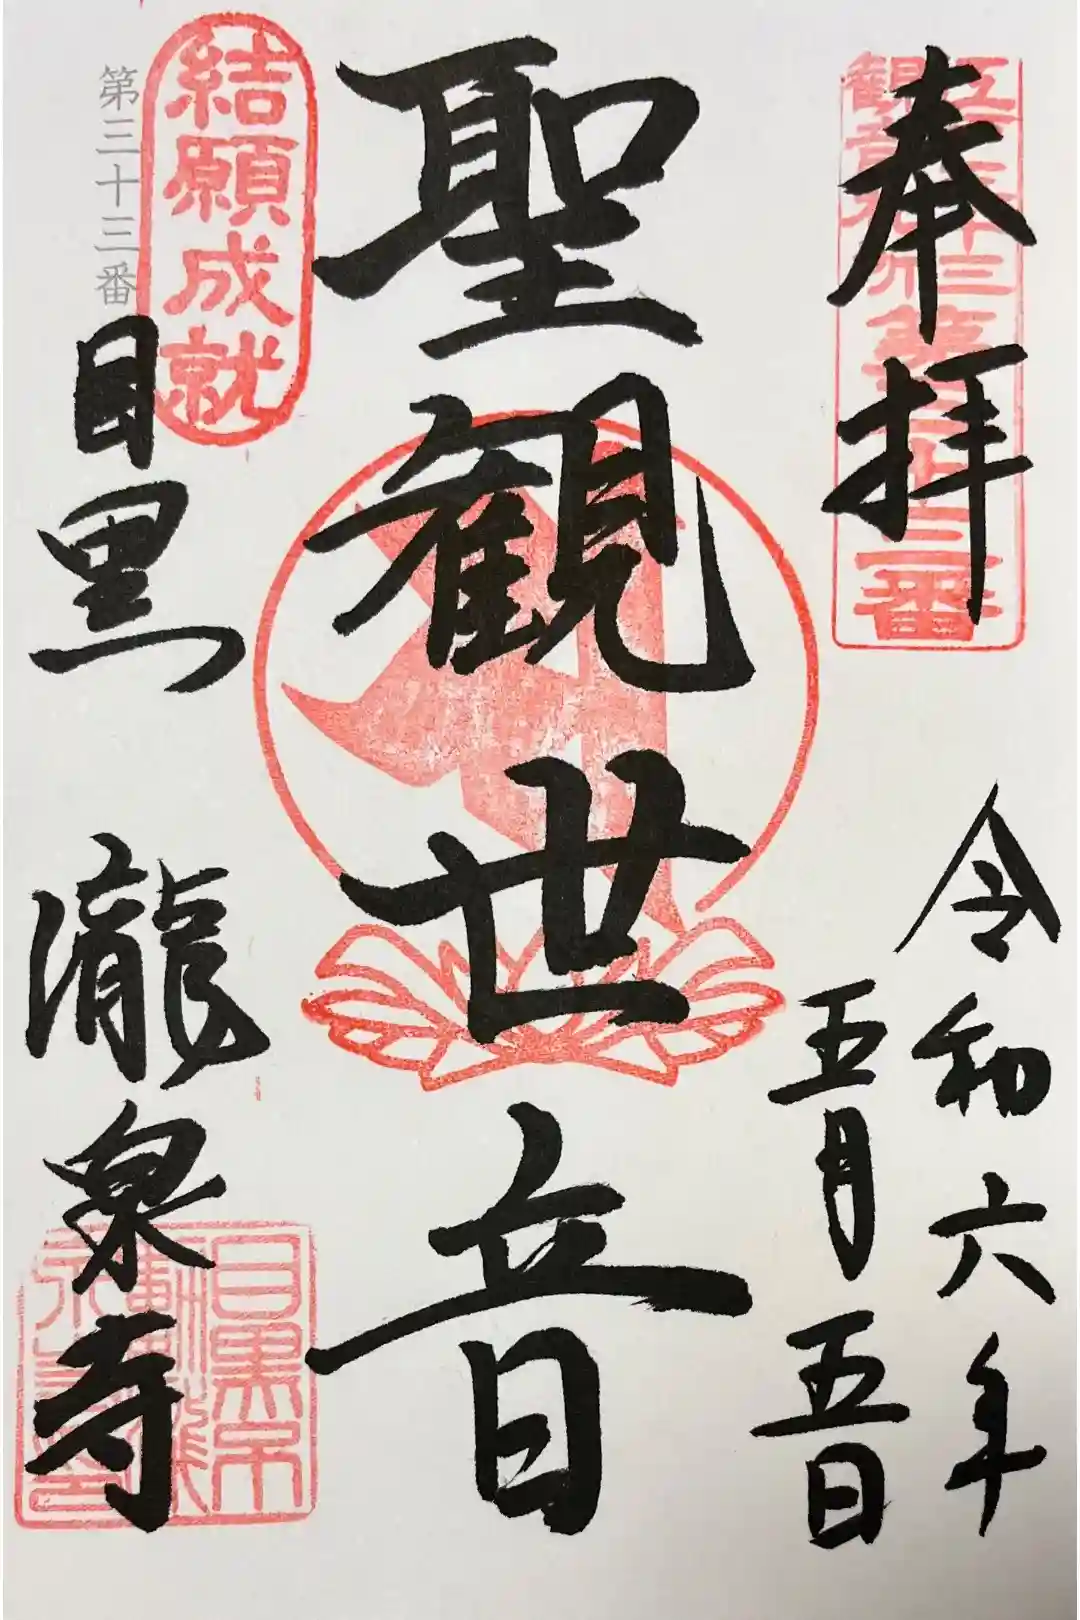 奉拝
令和六年
五月五日
聖観世音
結願成就
第三十三番
目黒 瀧泉寺